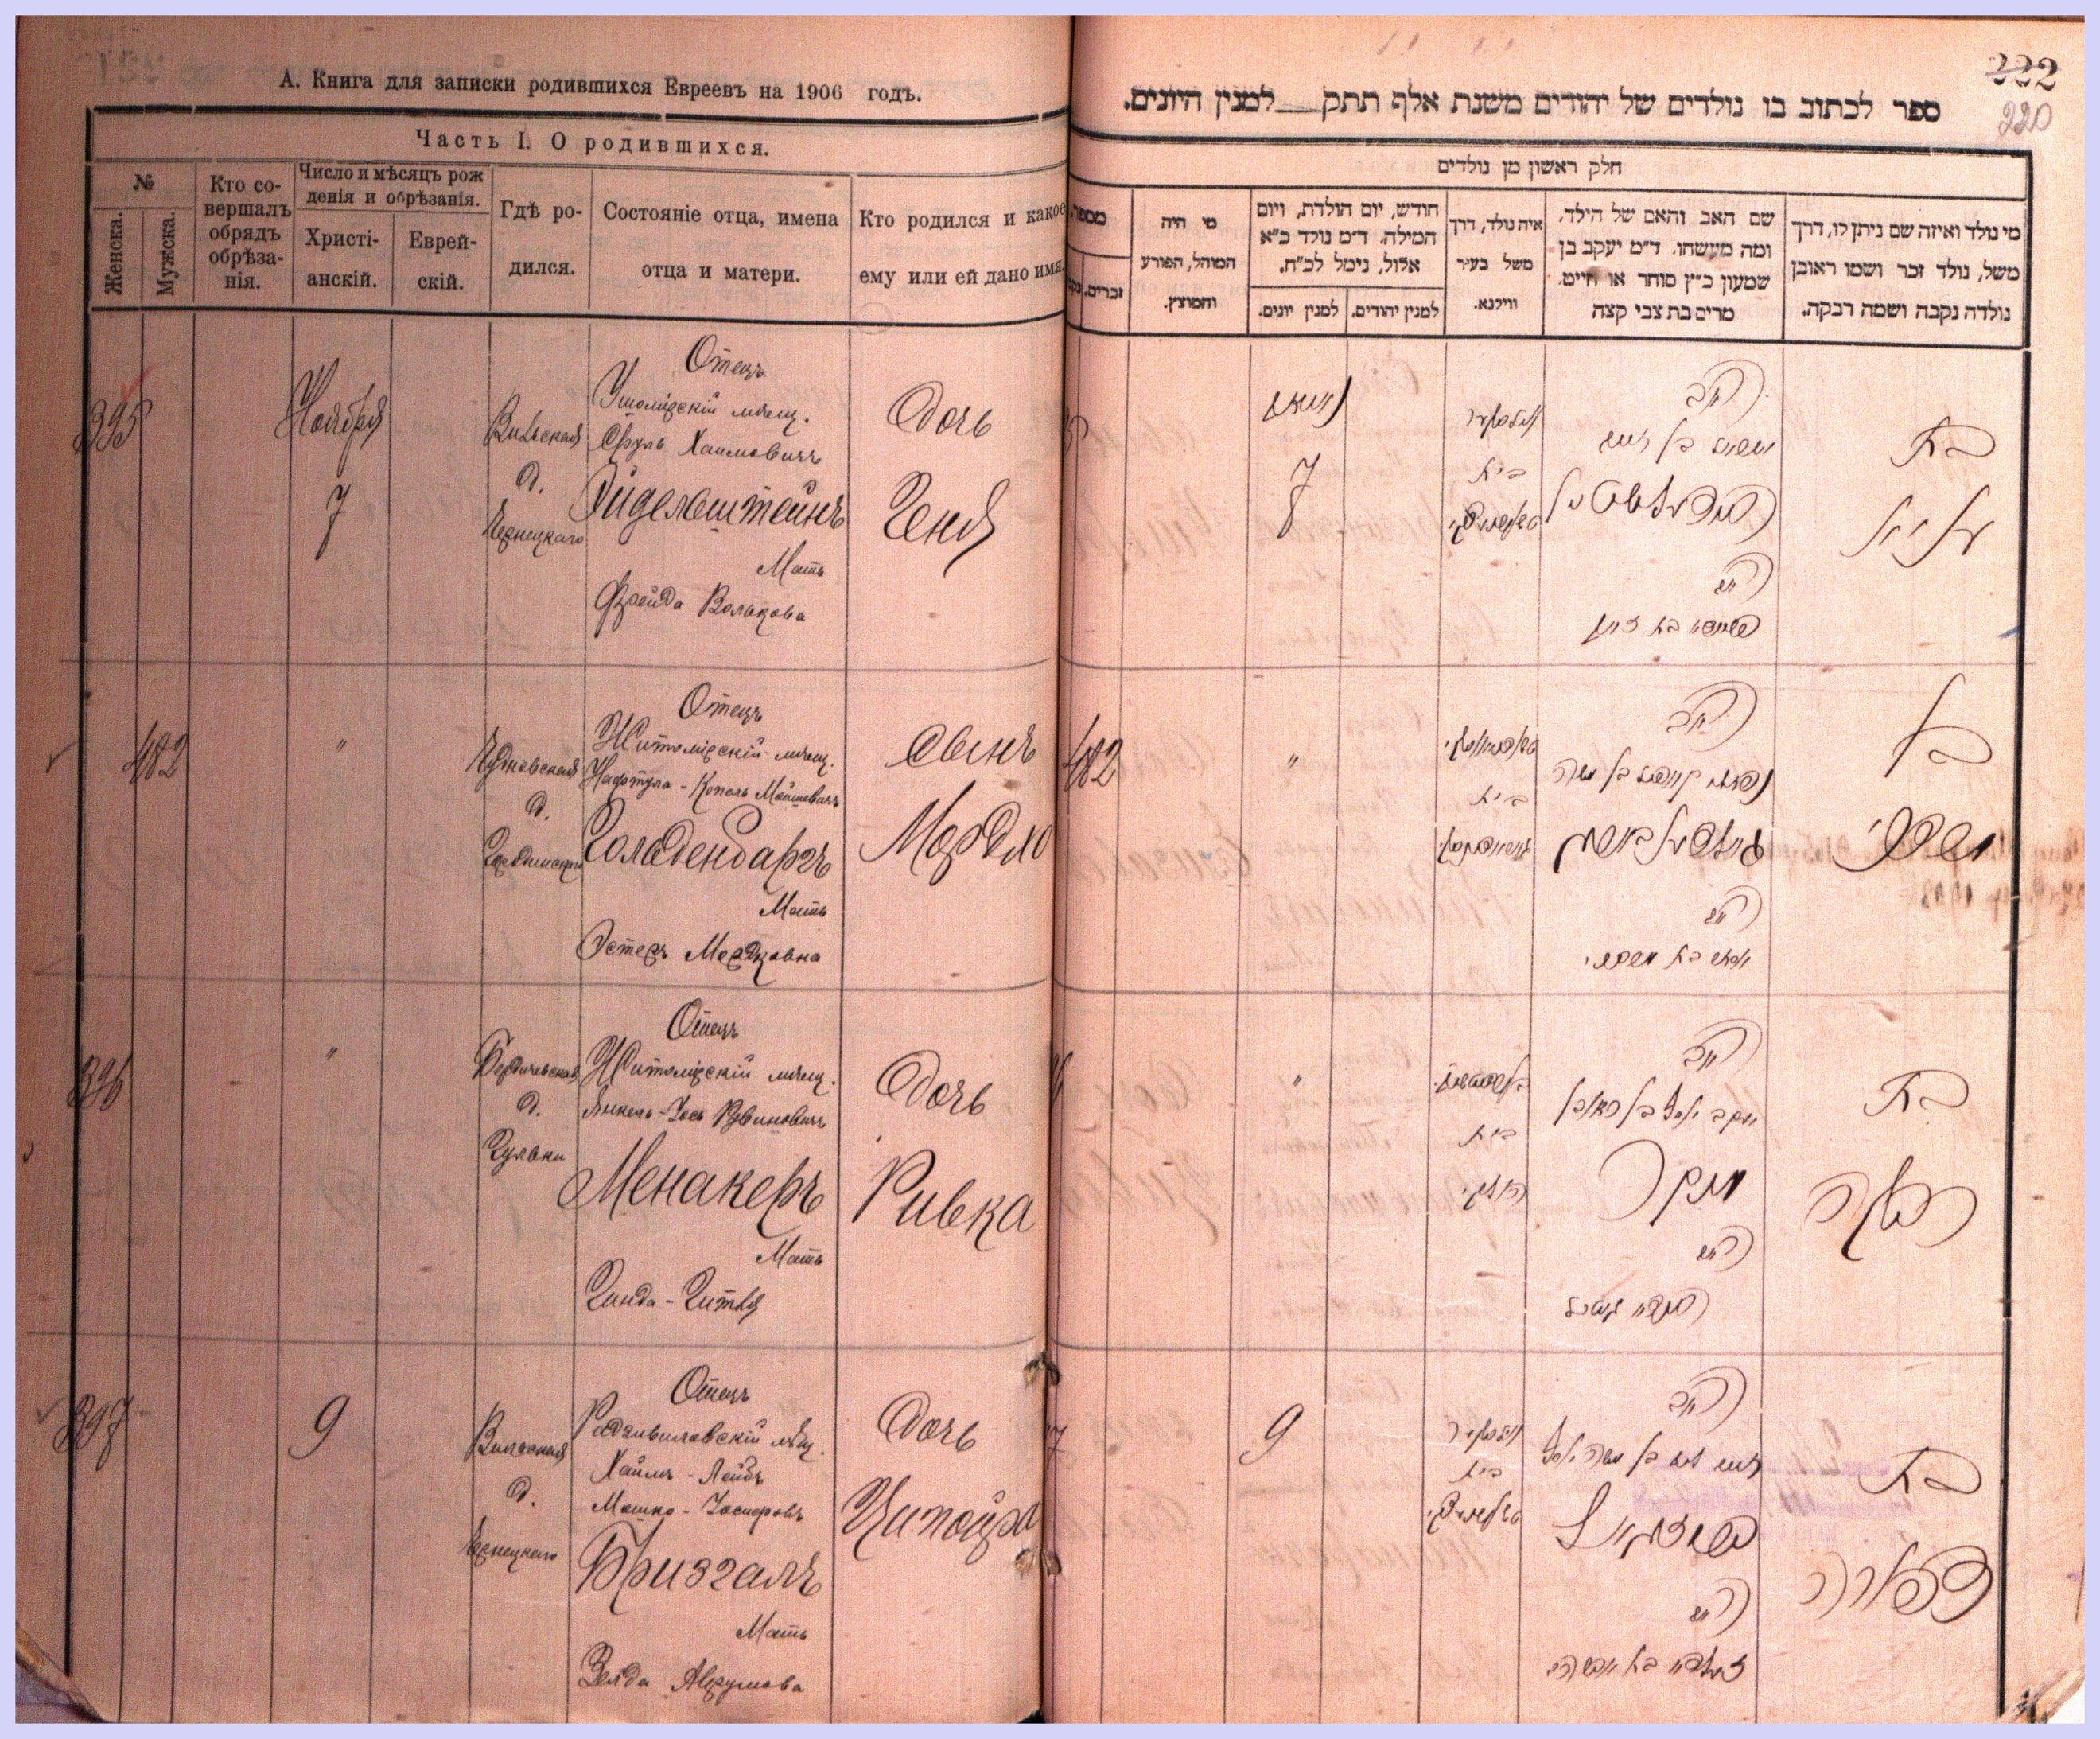 А. Книга для записки родившихся Евреевъ на 1906 годъ.
Часть I. О родившихся.
№
Женска.
Мужска.
Кто со-
вершалъ
обрядъ
обрѣза-
нія.
Число и мѣсяцъ рож
денія и обрѣзанія.
Христі-
анскій.
Еврей-
скій.
Гдѣ ро-
дился.
Состояніе отца, имена
отца и матери.
Кто родился и какое
ему или ей дано имя.
395
Ноября
7
Вильская
д.
Чернецкаго
Отецъ
Ушомірскій мѣщ.
Сруль Хаимовичъ
Эйдельштейнъ
Мать
Фрейда Волькова
Дочь
Геня
482
"
Чудновская
д.
Отецъ
Житомірскій мѣщ.
Нафтула-Кополь Мошковичъ
Гольденбаргъ
Мать
Эстеръ Мордковна
Сынъ
Мордко
396
"
Бердичевская
д.
Гульки
Отецъ
Житомірскій мѣщ.
Янкель-Іось Рувиновичъ
Менакеръ
Мать
Гинда-Гитля
Дочь
Ривка
397
9
Вильская
д.
Чернецкаго
Отецъ
Радзивиловскій мѣщ.
Хаимъ-Лейбъ
Мошко-Іосифовъ
Бризгалъ
Мать
Зелда Аврумова
Дочь
Ципойра
222
220
ספר לכתוב בו נולדים של יהודים משנת אלף תתק למנין היונים.
חלק ראשון מן נולדים
מספר
זכרים.
מי היה
המוהל, הפורע
והמוצץ.
חודש, יום הולדת, ויום
המילה. ד"מ נולד כ"א
אלול, נימל לכ"ח.
למנין יונים.
למנין יהודים.
איה נולד, דרך
משל בעיר
ווילנא.
שם האב והאם של הילד,
ומה מעשהו. ד"מ יעקב בן
שמעון כ"ץ סוחר או חיים.
מרים בת צבי קצה
מי נולד ואיזה שם ניתן לו, דרך
משל, נולד זכר ושמו ראובן
נולדה נקבה ושמה רבקה.
7
בית
האב
האם
בת
482
"
בית
האב
נפתלי קאפיל בן משה
גאלדענבארג
האם
בן
מרדכי
"
בית
האב
יעקב יוסף בן ראובן
מנקר
האם
בת
רבקה
9
בית
האב
חיים ליב בן משה יוסף
האם
בת
צפורה